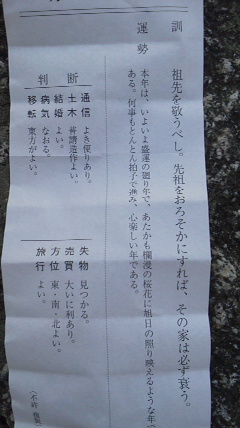 訓
祖先を敬うべし。先祖をおろそかにすれば、その家は必ず衰う。
運勢
本年は、いよいよ盛運の廻り年で、あたかも爛漫の桜花に旭日の照り映えるような年で
ある。何事もとんとん拍子で進み、心楽しい年である。
判断
通信 よき便りあり。
土木 普請造作よい。
結婚 よい。
病気 なおる。
移転 東方がよい。
失物 見つかる。
売買 大いに利あり。
方位 東・南・北よい。
旅行 よい。